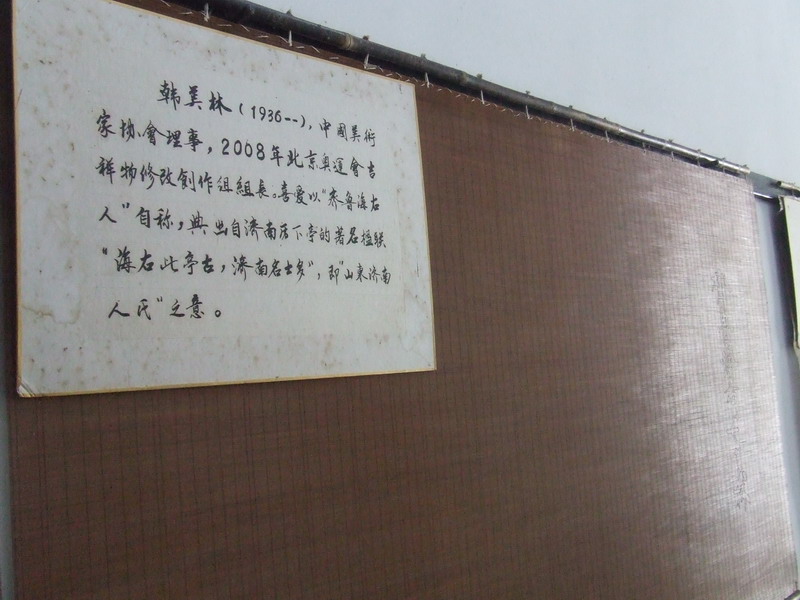 韩美林(1936--)，中國美術
家协會理事，2008年北京奥運會吉
祥物修改創作组組長。喜爱以"齐鲁海右
人"自称，典出自濟南历下亭的著名楹联
"海右此亭古，濟南名士多"，即"山東济南
人氏"之意。